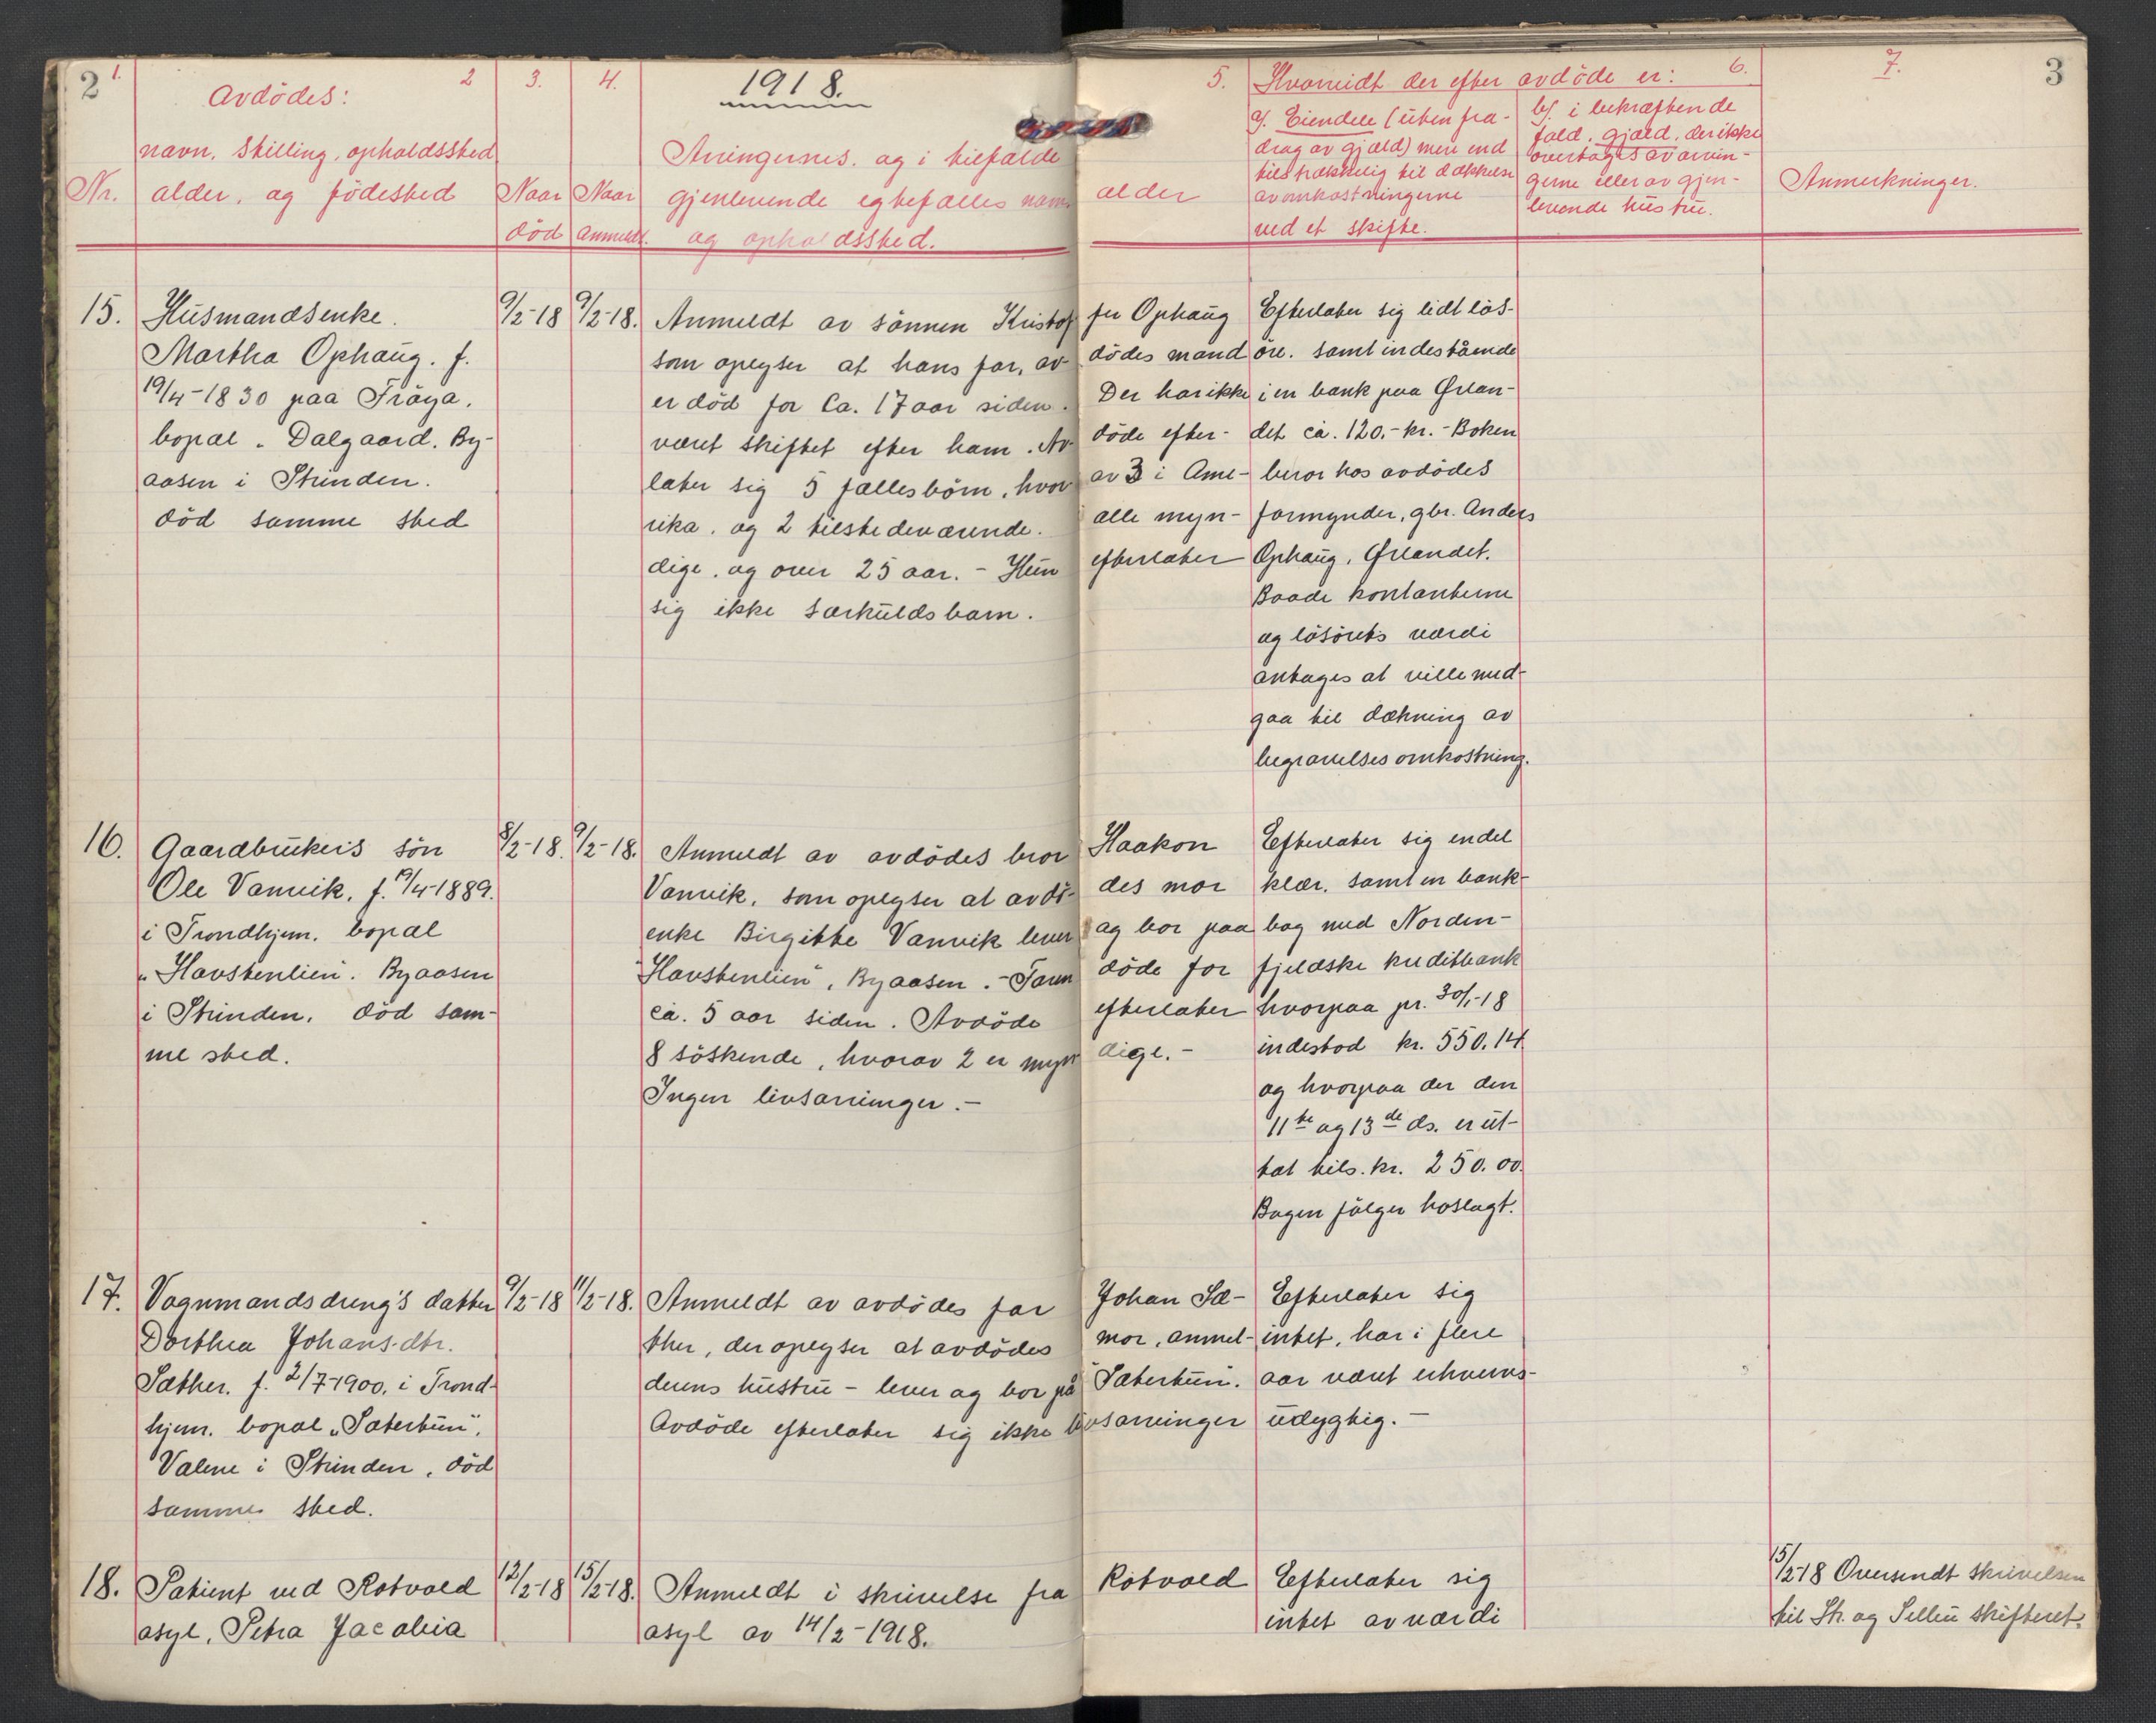 2
1918.
3
1. 2 3. 4. 5. 6. 7.
Avdödes:
navn, stilling, opholdssted
Nr. alder, og födested
Naar död
Naar anmeldt.
Arvingernes, og i tilfælde
gjenlevende egtefælles navn
og opholdssted.
alder
Hvorvidt der efter avdöde er:
a). Eiendele (uten fra-
drag av gjæld) mere end
tilstrækkelig til dækkelse
av omkostningerne
ved et skifte.
b). i bekræftende
fald, gjæld, der ikke
overtages av arvin-
gerne eller av gjen-
levende hustru.
Anmerkninger.
15. Husmandsenke.
Martha Ophaug. f.
19/4-1830 paa Fröya.
bopæl „Dalgaard. By-
aasen i Strinden.
död samme sted
9/2-18
9/2-18.
Anmeldt av sönnen Kristof fer Ophaug
som oplyser at hans far, av dödes mand
er död for ca. 17 aar siden. Der har ikke
været skiftet efter ham. Av döde efter-
later sig 5 fællesbörn, hvor av 3 i Ame-
rika, og 2 tilstedeværende. alle myn-
dige, og over 25 aar. - Hun efterlater
sig ikke særkuldsbarn.
Efterlater sig lidt lös-
öre. samt indestående
i en bank paa Ørlan-
det ca. 120.- kr. - Boken
beror hos avdödes
formynder, gbr. Anders
Ophaug, Ørlandet.
Baade kontanterne
og lösörets værdi
antages at ville med-
gaa til dækning av
begravelsesomkostning.
16. Gaardbrukers sön
Ole Vanvik, f. 19/4-1889.
i Trondhjem. bopæl
„Havstenlien". Byaasen
i Strinden, död sam-
me sted.
8/2-18.
9/2-18.
Anmeldt av avdödes bror Haakon
Vanvik, som oplyser at avdö- des mor
enke Birgitte Vanvik lever og bor paa
"Havstenlien", Byaasen. - Faren döde for
ca. 5 aar siden. Avdöde efterlater
8 söskende, hvorav 2 er myn dige. -
Ingen livsarvinger. -
Efterlater sig endel
klær, samt en bank-
bog med Norden-
fjeldske kreditbank
hvorpaa pr. 30/1-18
indestod kr. 550.14
og hvorpaa der den
11te og 13de ds. er ut-
tat tils. kr. 250.00.
Bogen fölger hoslagt.
17. Vognmandsdreng's datter
Dorthea Johans-dtr.
Sæther, f. 2/7-1900, i Trond-
hjem. bopæl „Sætertun",
Valene i Strinden, död
samme sted.
9/2-18
11/2-18.
Anmeldt av avdödes far Johan Sæ-
ther, der oplyser at avdödes mor, anmel-
derens hustru - lever og bor på Sætertun.
Avdöde efterlater sig ikke livsarvinger
Efterlater sig
intet, har i flere
aar været erhvervs-
udygtig. -
18. Patient ved Rotvold
asyl, Petra Jacobia
12/2-18
15/2-18.
Anmeldt i skrivelse fra Rotvold
asyl av 14/2-1918.
Efterlater sig
intet av værdi
15/2-18 Oversendt skrivelsen
til Str. og Selbu skifteret.